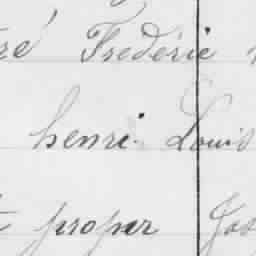 ré Frédéric
henri Louis
t prosper Jos